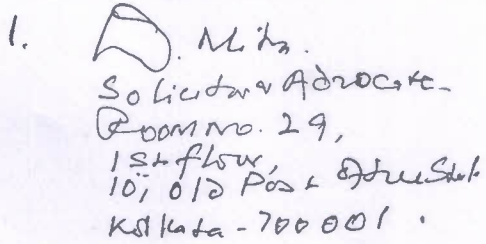 1. D. Mitra.
Solicitor & Advocate
Room no. 29,
1st floor,
10, Old Post Office Street
Kolkata - 700001.